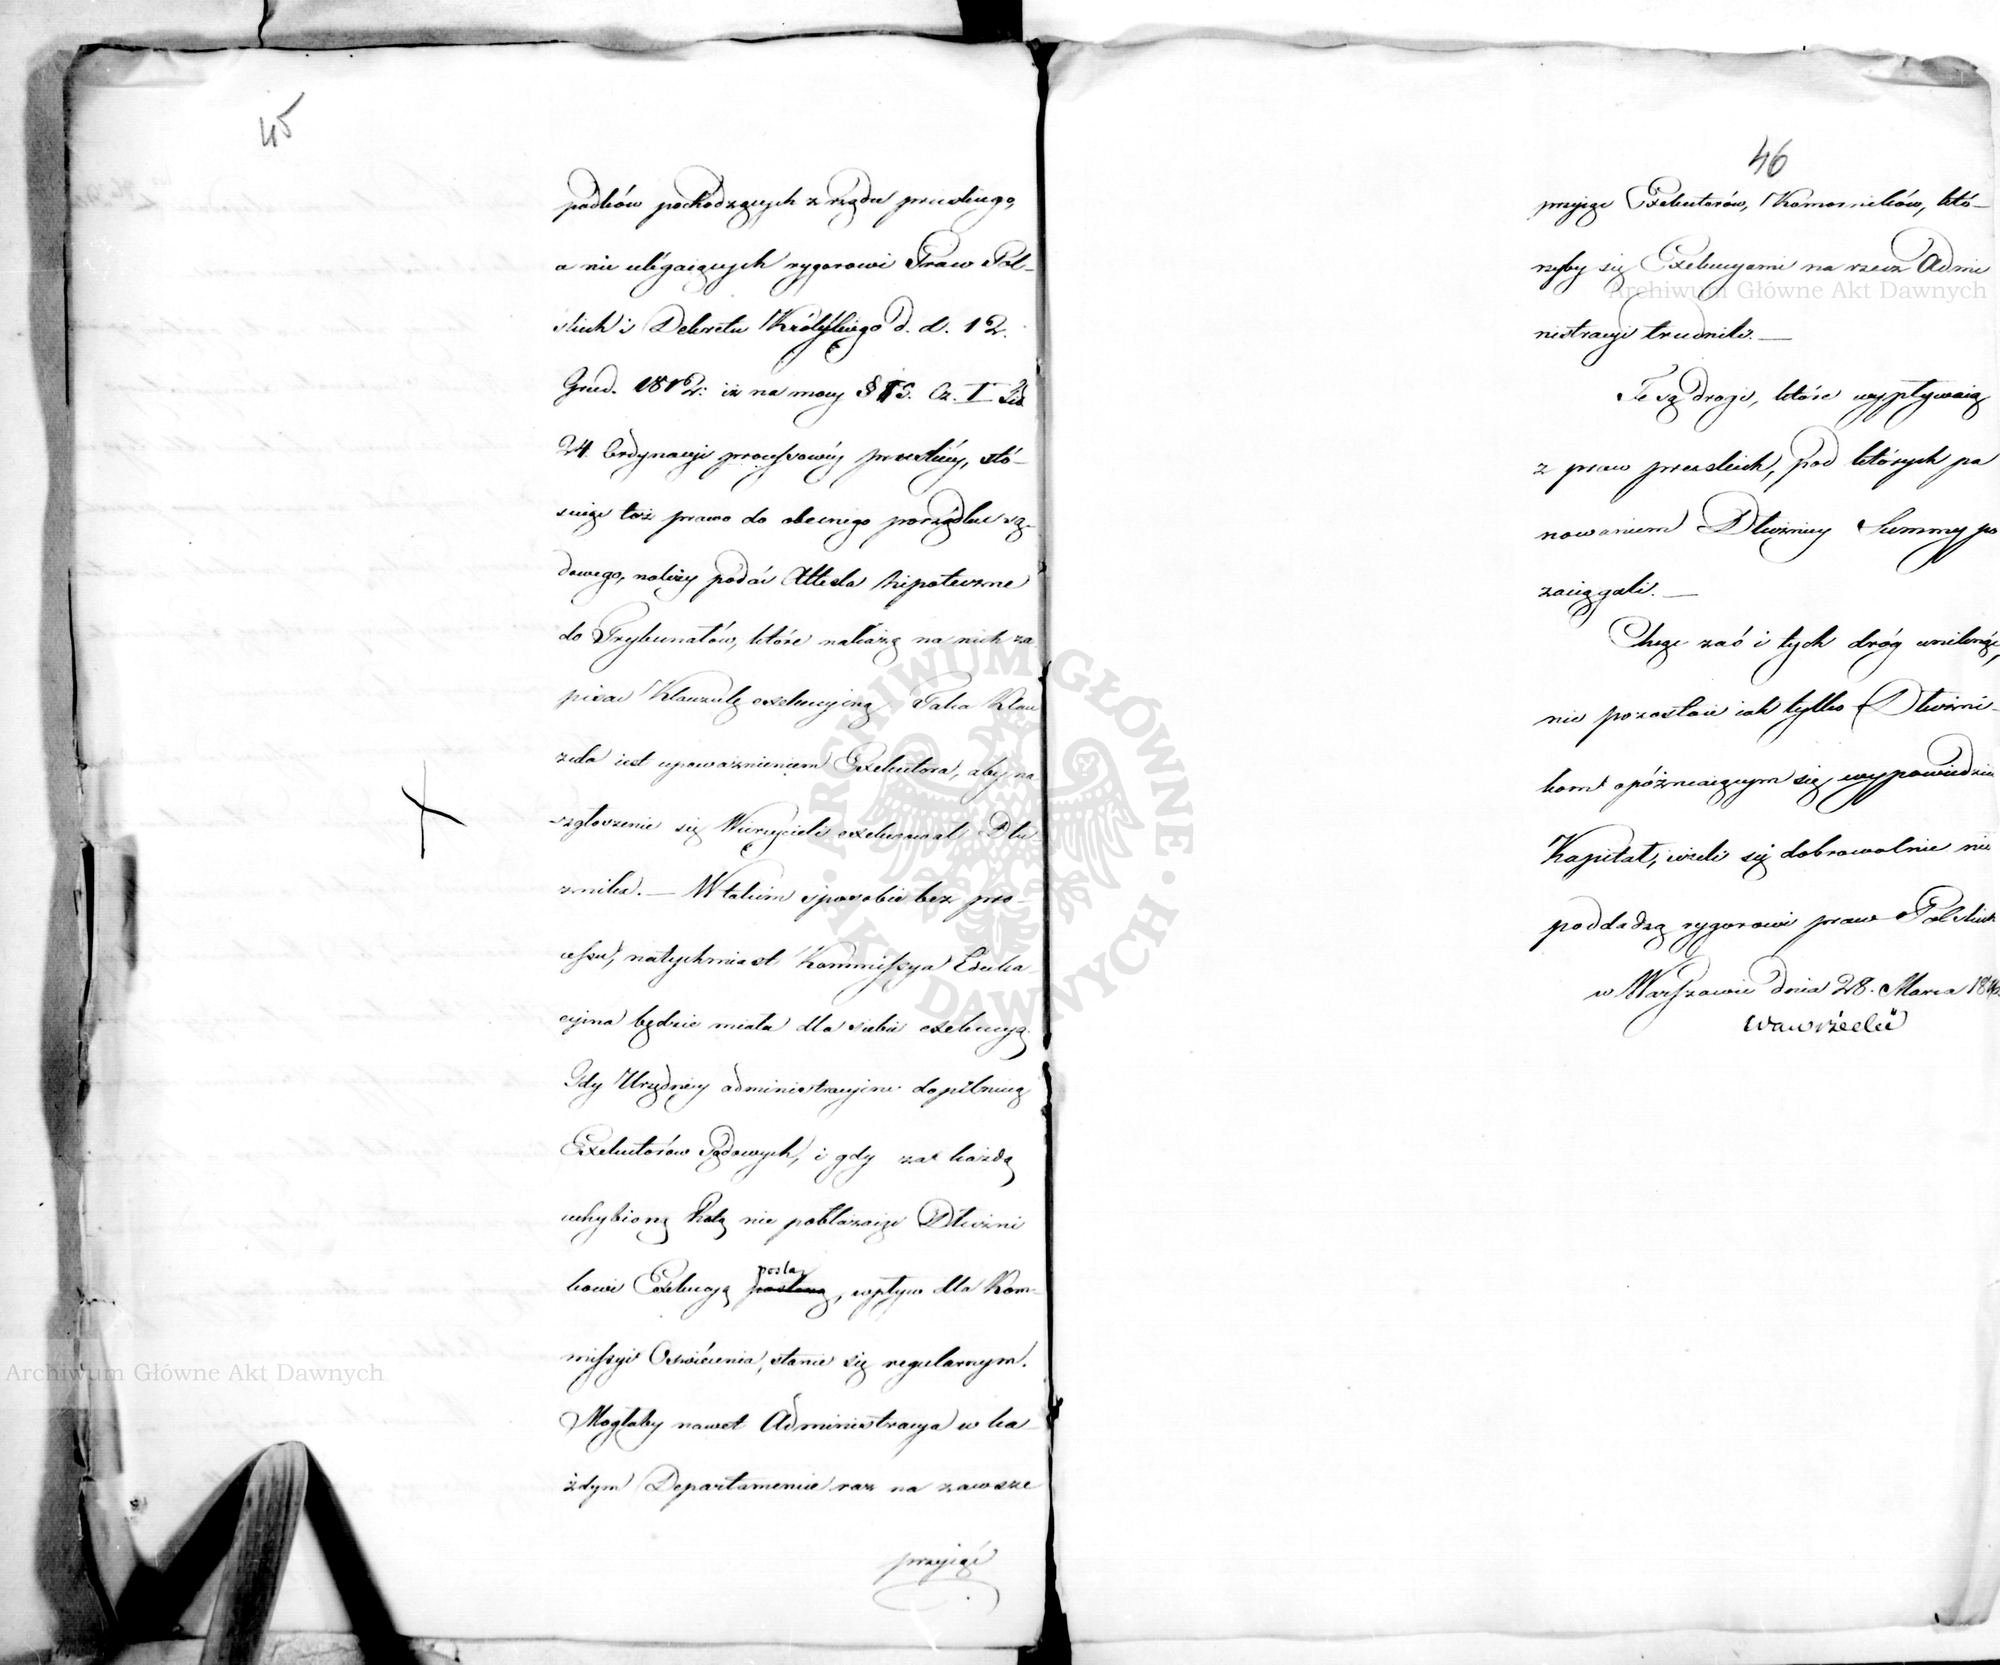 45
padków pochodzących z rządu pruskiego,
a nie ulégaiących rygorowi Praw Pol-
skich i Dekretu Królewskiego d. d. 12.
Grud. 1812: iż na mocy § 15. Cz. I Tit
24 Ordynacyi processowéy pruskiéy, stó-
suiąc toż prawo do obecnego porządku są-
dowego, należy podać Attesta hipoteczne
do Trybunałów, które nakażą na nich za
pisać Klauzulę exekucyiną. Taka Klau
zula iest upoważnieniem Exekutora, aby na
zgłoszenie się Wierzycieli exekwował Dłu
żnika. — W takim sposobie bez pro-
cessu, natychmiast Kommissya Eduka
cyina będzie miała dla siebie exekucyą.
Gdy Urzędnicy administracyini dopilnuią
Exekutorów Sądowych, i gdy za każdą
uchybioną Ratę nie pobłażaiąc Dłużni
kowi Exekucyą posłaną posla, wpływ dla Kom-
missyi Oświécenia, stanie się regularnym.
Mogłaby nawet Administracya w ka-
żdym Departamencie raz na zawsze
przyiąć
46
przyiąć Exekutorów, Komorników, któ-
rzyby się Exekucyami na rzecz Admi
nistracyi trudnili. —
Te są drogi, które wypływaią
z praw pruskich, pod których pa
nowaniem Dłużnicy Summy po
zaciągali. —
Chcąc zaś i tych dróg uniknąć,
nie pozostaie iak tylko Dłużni-
kom opóźniaiącym się, wypowiedzieć
Kapitał, ieżeli się dobrowolnie nie
poddadzą rygorowi praw Polskich
w Warszawie dnia 28. Marca 1816.
Wawrzecki
Archiwum Główne Akt Dawnych
Archiwum Główne Akt Dawnych
ARCHIWUM GŁÓWNE AKT DAWNYCH